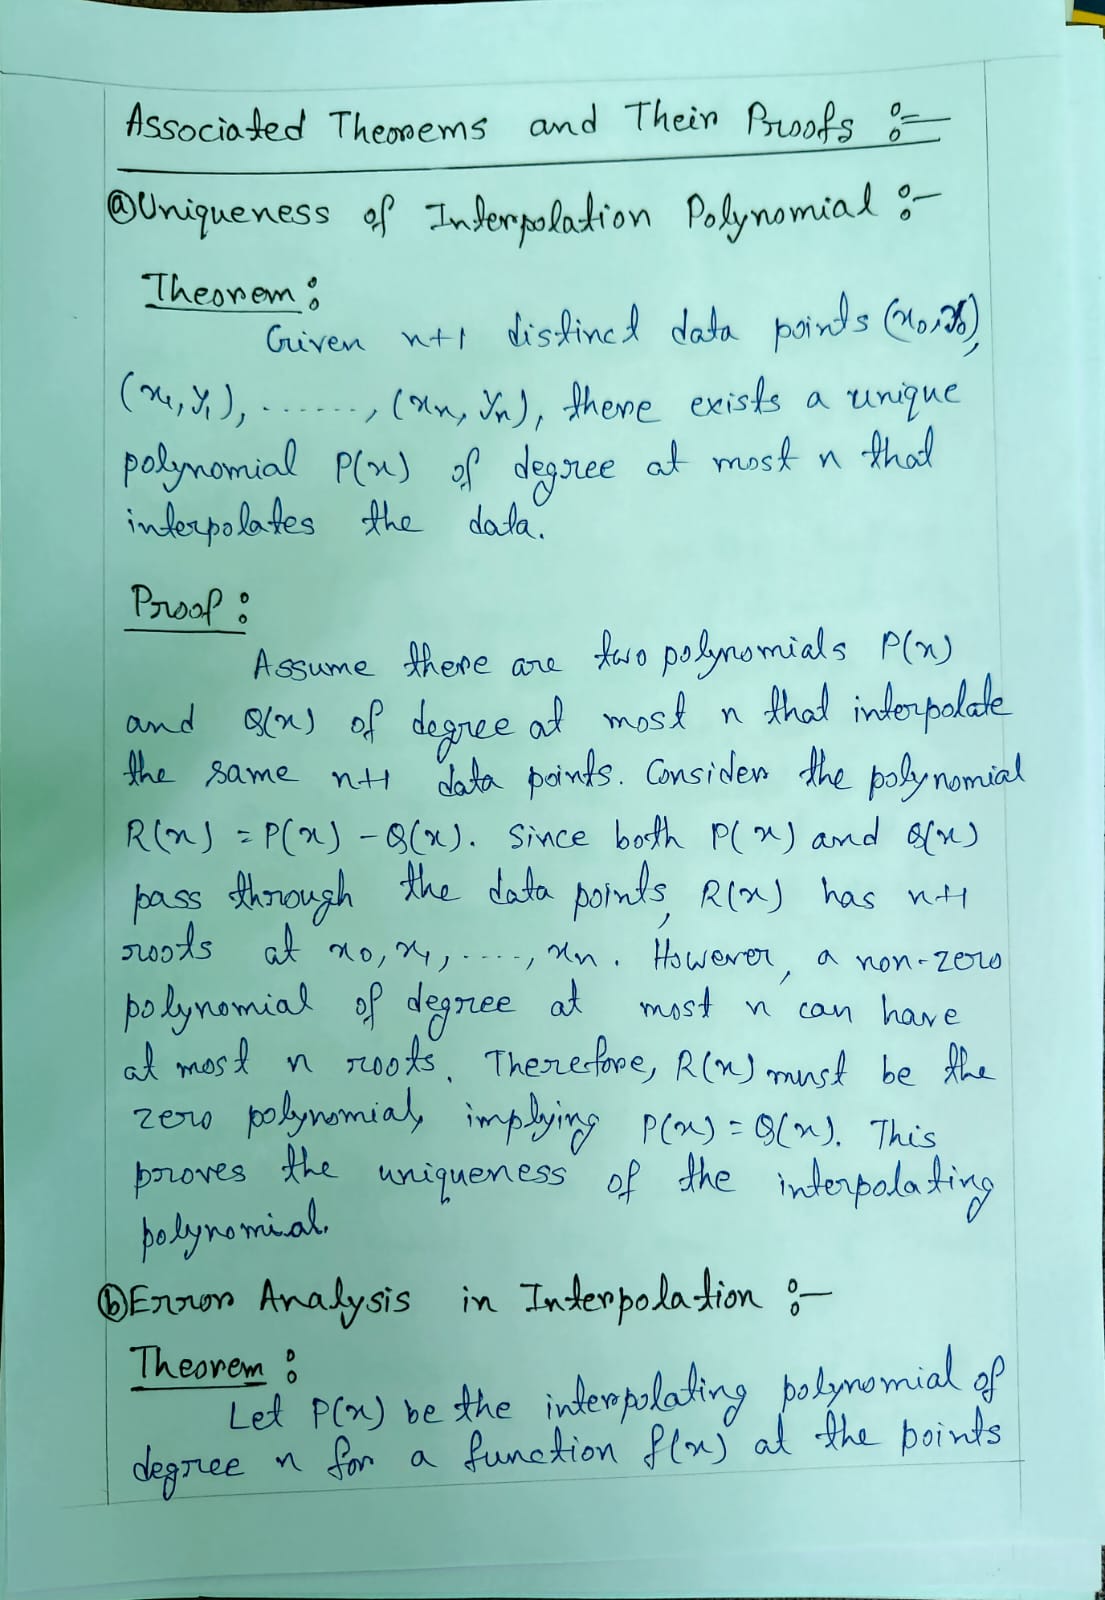 Associated Theorems and Their Proofs :-
ⓐ Uniqueness of Interpolation Polynomial :-
Theorem :
Given n+1 distinct data points (x₀, y₀),
(x₁, y₁), ......., (xₙ, yₙ), there exists a unique
polynomial P(x) of degree at most n that
interpolates the data.
Proof :
Assume there are two polynomials P(x)
and Q(x) of degree at most n that interpolate
the same n+1 data points. Consider the polynomial
R(x) = P(x) - Q(x). Since both P(x) and Q(x)
pass through the data points, R(x) has n+1
roots at x₀, x₁, ....., xₙ. However, a non-zero
polynomial of degree at most n can have
at most n roots. Therefore, R(x) must be the
zero polynomial, implying P(x) = Q(x). This
proves the uniqueness of the interpolating
polynomial.
ⓑ Error Analysis in Interpolation :-
Theorem :
Let P(x) be the interpolating polynomial of
degree n for a function f(x) at the points